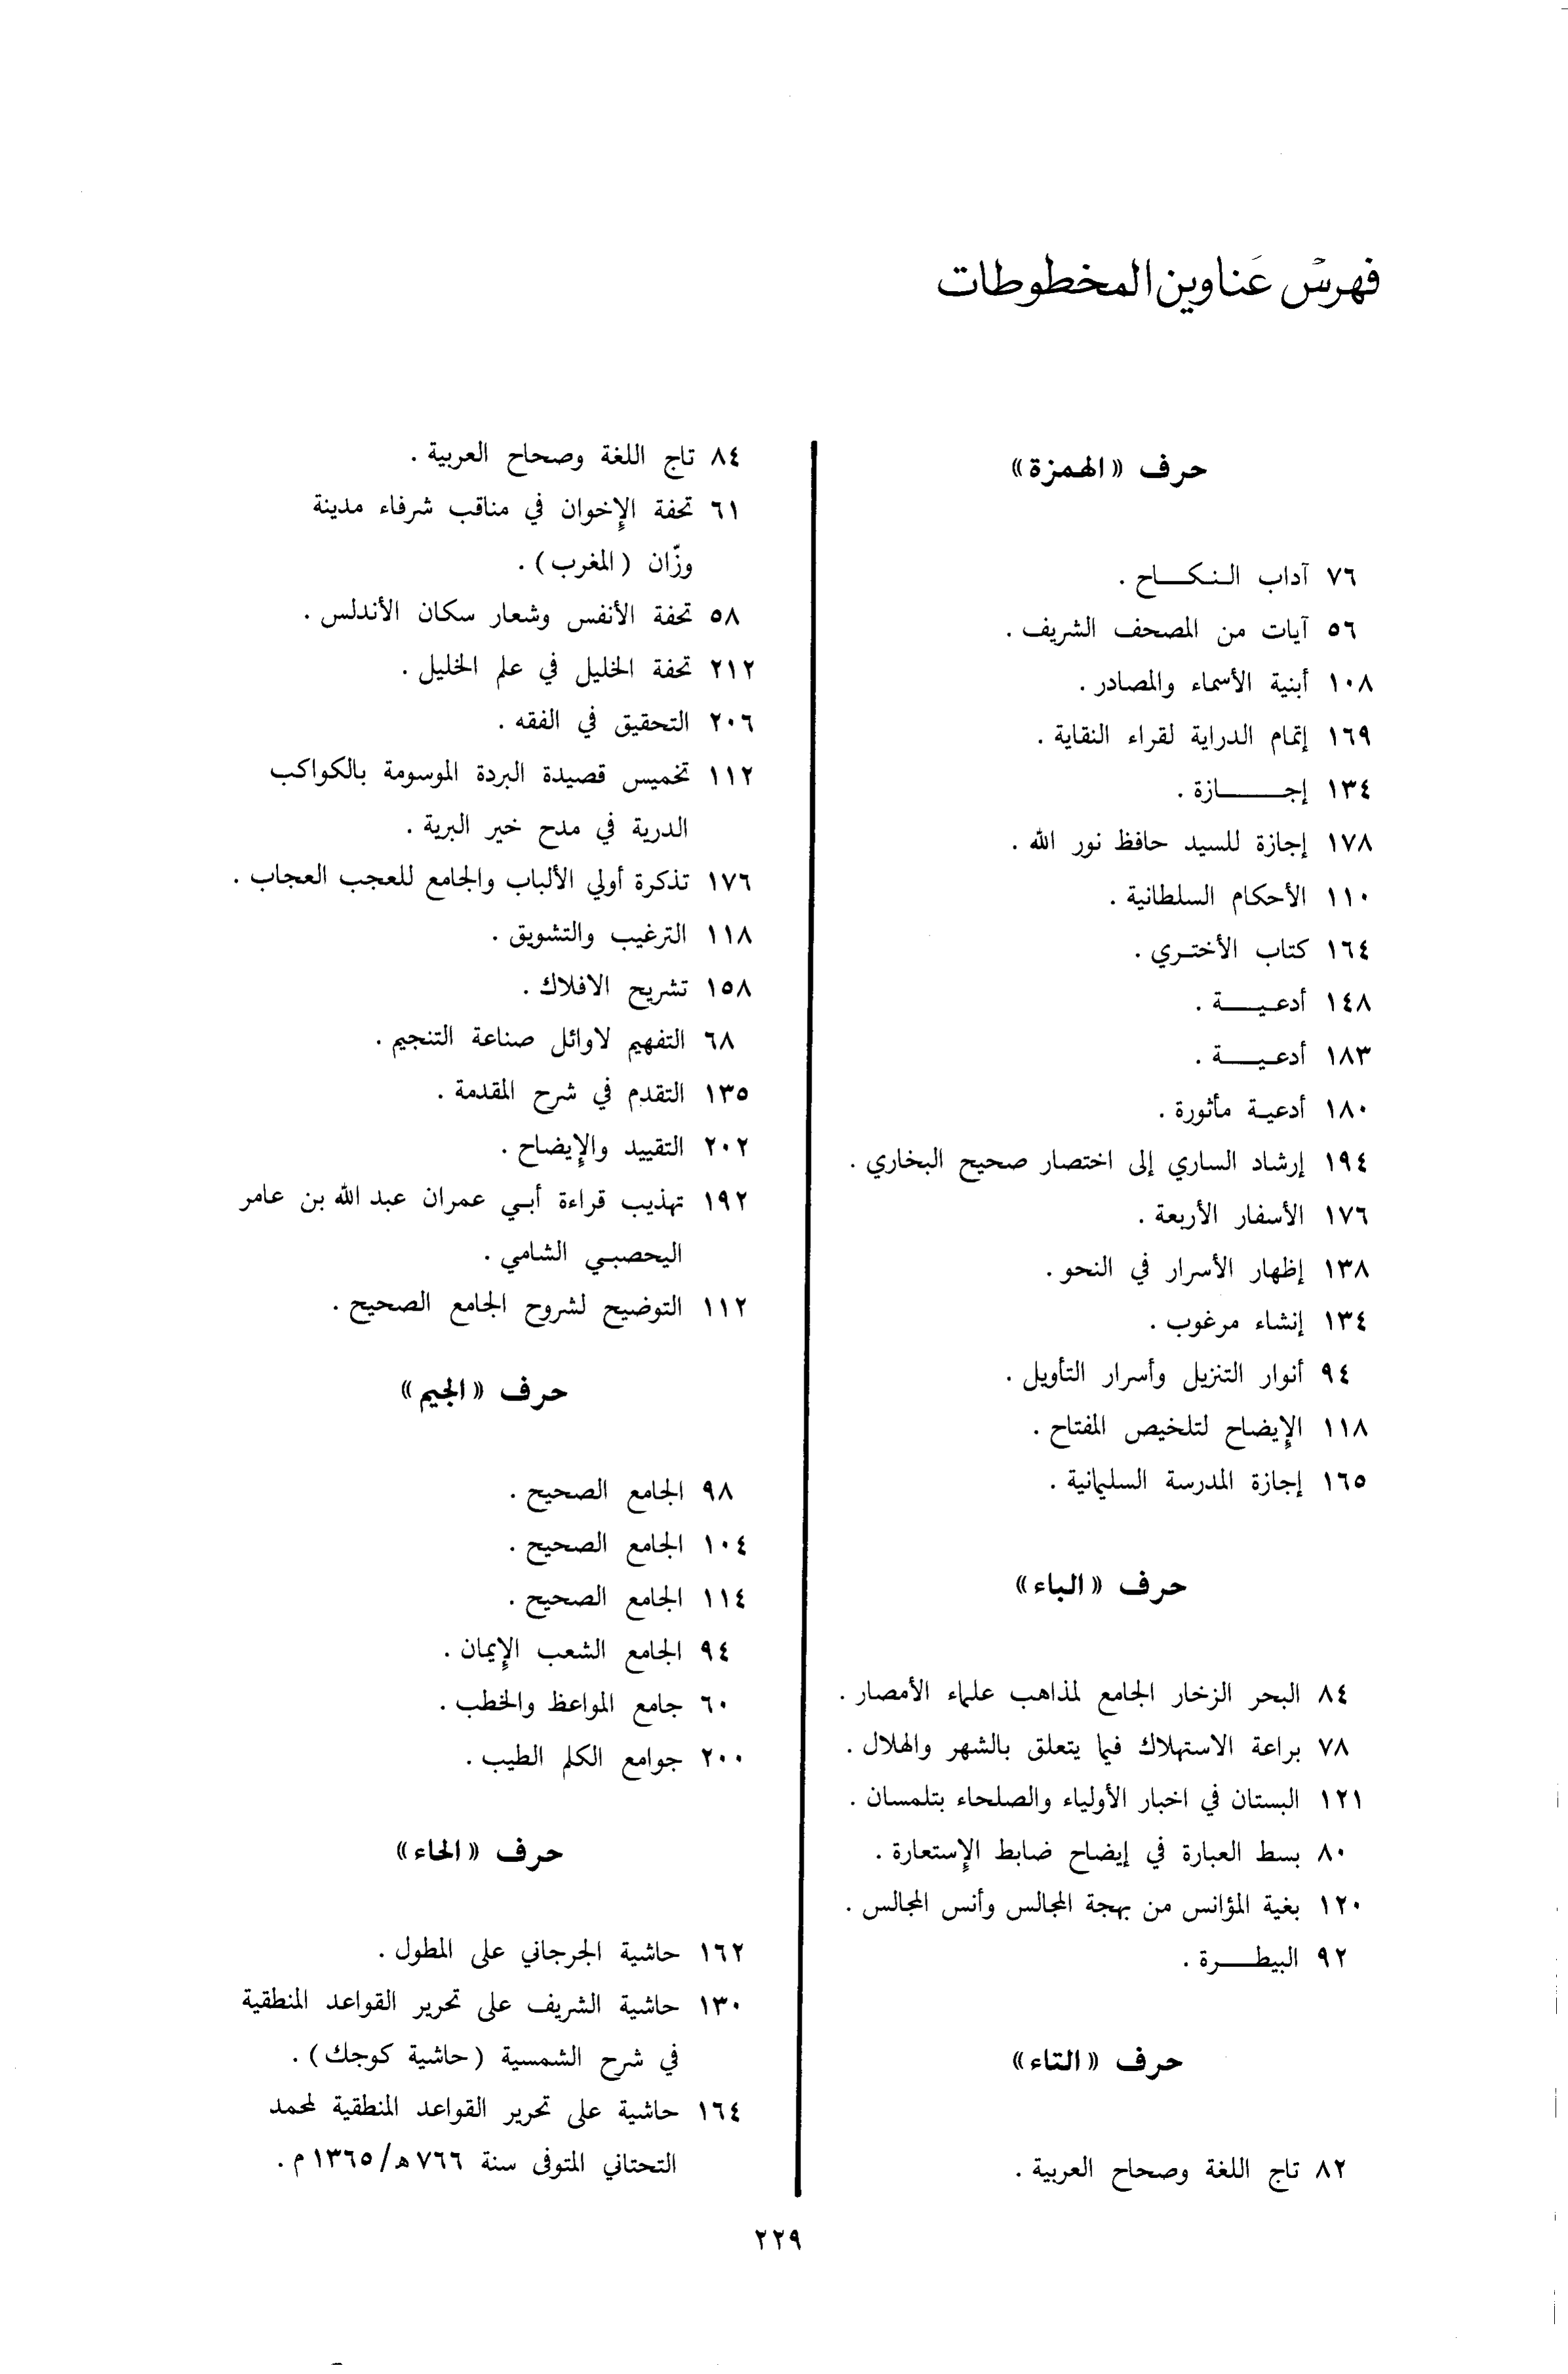 فهرس عناوين المخطوطات
حرف «الهمزة»
٧٦ آداب النكـــاح .
٥٦ آيات من المصحف الشريف .
١٠٨ أبنية الأسماء والمصادر .
١٦٩ إتمام الدراية لقراء النقاية .
١٣٤ إجـــــازة .
١٧٨ إجازة للسيد حافظ نور الله .
١١٠ الأحكام السلطانية .
١٦٤ كتاب الأختري .
١٤٨ أدعيـــة .
١٨٣ أدعيـــة .
١٨٠ أدعية مأثورة .
١٩٤ إرشاد الساري إلى اختصار صحيح البخاري .
١٧٦ الأسفار الأربعة .
١٣٨ إظهار الأسرار في النحو .
١٣٤ إنشاء مرغوب .
٩٤ أنوار التنزيل وأسرار التأويل .
١١٨ الإيضاح لتلخيص المفتاح .
١٦٥ إجازة المدرسة السليمانية .
حرف «الباء»
٨٤ البحر الزخار الجامع لمذاهب علماء الأمصار .
٧٨ براعة الاستهلاك فيما يتعلق بالشهر والهلال .
١٢١ البستان في اخبار الأولياء والصلحاء بتلمسان .
٨٠ بسط العبارة في إيضاح ضابط الإستعارة .
١٢٠ بغية المؤانس من بهجة المجالس وأنس المجالس .
٩٢ البيطـــرة .
حرف «التاء»
٨٢ تاج اللغة وصحاح العربية .
٨٤ تاج اللغة وصحاح العربية .
٦١ تحفة الإخوان في مناقب شرفاء مدينة
وزّان (المغرب) .
٥٨ تحفة الأنفس وشعار سكان الأندلس .
٢١٢ تحفة الخليل في علم الخليل .
٢٠٦ التحقيق في الفقه .
١١٢ تخميس قصيدة البردة الموسومة بالكواكب
الدرية في مدح خير البرية .
١٧٦ تذكرة أولي الألباب والجامع للعجب العجاب .
١١٨ الترغيب والتشويق .
١٥٨ تشريح الافلاك .
٦٨ التفهيم لاوائل صناعة التنجيم .
١٣٥ التقدم في شرح المقدمة .
٢٠٢ التقييد والإيضاح .
١٩٢ تهذيب قراءة أبي عمران عبد الله بن عامر
اليحصبي الشامي .
١١٢ التوضيح لشروح الجامع الصحيح .
حرف «الجيم»
٩٨ الجامع الصحيح .
١٠٤ الجامع الصحيح .
١١٤ الجامع الصحيح .
٩٤ الجامع الشعب الإيمان .
٦٠ جامع المواعظ والخطب .
٢٠٠ جوامع الكلم الطيب .
حرف «الحاء»
١٦٢ حاشية الجرجاني على المطول .
١٣٠ حاشية الشريف على تحرير القواعد المنطقية
في شرح الشمسية (حاشية كوجك) .
١٦٤ حاشية على تحرير القواعد المنطقية لمحمد
التحتاني المتوفى سنة ٧٦٦ هـ/١٣٦٥ م .
٢٢٩